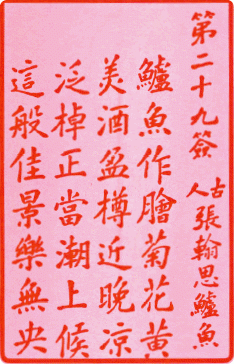 第二十九簽
古人 張翰思鱸魚
鱸魚作膾菊花黃
美酒盈樽近晚凉
泛棹正當潮上候
這般佳景樂無央